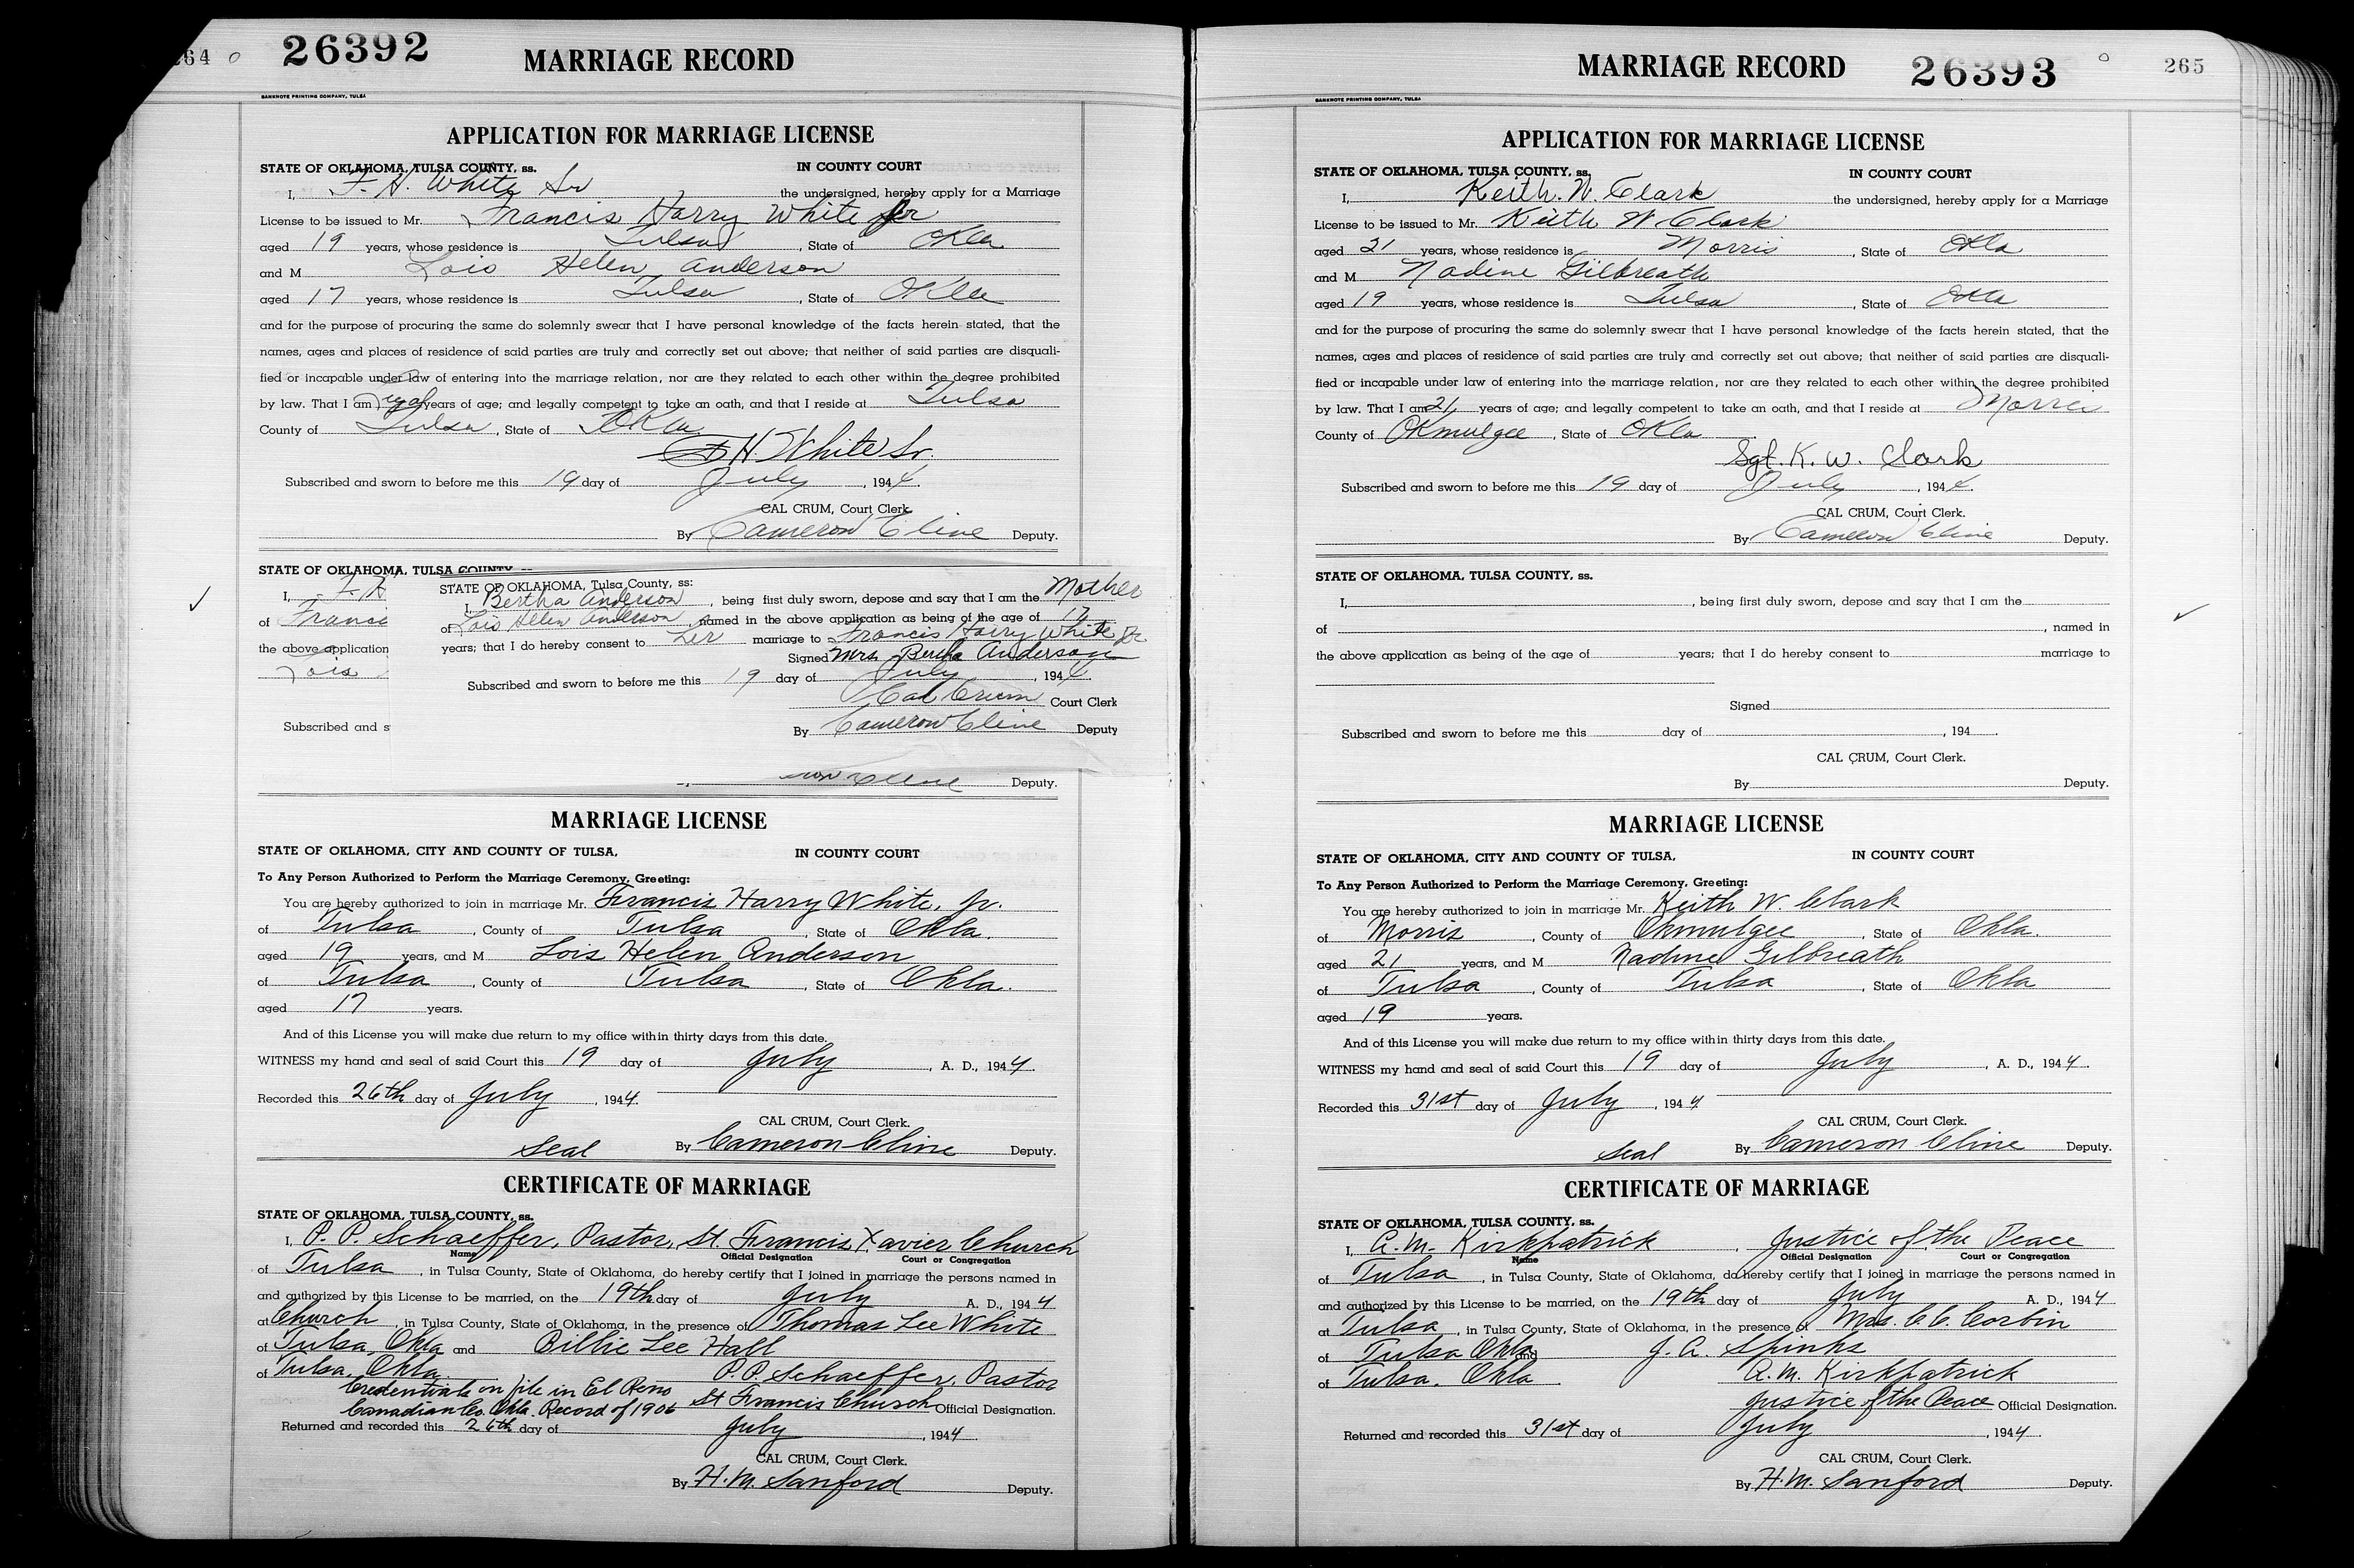 264 26392 MARRIAGE RECORD
BANKNOTE PRINTING COMPANY, TULSA
APPLICATION FOR MARRIAGE LICENSE
STATE OF OKLAHOMA, TULSA COUNTY, ss. IN COUNTY COURT
I, F. H. White Sr the undersigned, hereby apply for a Marriage
License to be issued to Mr. Francis Harry White Jr
aged 19 years, whose residence is Tulsa, State of Okla
and M Lois Helen Anderson
aged 17 years, whose residence is Tulsa, State of Okla
and for the purpose of procuring the same do solemnly swear that I have personal knowledge of the facts herein stated, that the
names, ages and places of residence of said parties are truly and correctly set out above; that neither of said parties are disquali-
fied or incapable under law of entering into the marriage relation, nor are they related to each other within the degree prohibited
by law. That I am Legal years of age; and legally competent to take an oath, and that I reside at Tulsa
County of Tulsa, State of Okla
F H. White Sr.
Subscribed and sworn to before me this 19 day of July, 1944.
CAL CRUM, Court Clerk.
By Cameron Cline Deputy.
STATE OF OKLAHOMA, TULSA COUNTY, ss.
I, F. H
of Franci
the above application
Lois
Subscribed and s
STATE OF OKLAHOMA, Tulsa County, ss:
I, Bertha Anderson, being first duly sworn, depose and say that I am the Mother
of Lois Helen Anderson, named in the above application as being of the age of 17
years; that I do hereby consent to her marriage to Francis Harry White Jr
Signed Mrs Bertha Anderson
Subscribed and sworn to before me this 19 day of July, 1944.
Cal Crum Court Clerk
By Cameron Cline Deputy
ron Cline Deputy.
MARRIAGE LICENSE
STATE OF OKLAHOMA, CITY AND COUNTY OF TULSA, IN COUNTY COURT
To Any Person Authorized to Perform the Marriage Ceremony, Greeting:
You are hereby authorized to join in marriage Mr. Francis Harry White, Jr.
of Tulsa, County of Tulsa, State of Okla.
aged 19 years, and M Lois Helen Anderson
of Tulsa, County of Tulsa, State of Okla.
aged 17 years.
And of this License you will make due return to my office within thirty days from this date.
WITNESS my hand and seal of said Court this 19 day of July, A. D., 1944.
Recorded this 26th day of July, 1944.
CAL CRUM, Court Clerk.
Seal By Cameron Cline Deputy.
CERTIFICATE OF MARRIAGE
STATE OF OKLAHOMA, TULSA COUNTY, ss.
I, P. P. Schaeffer, Pastor, St. Francis Xavier Church
Name Official Designation Court or Congregation
of Tulsa, in Tulsa County, State of Oklahoma, do hereby certify that I joined in marriage the persons named in
and authorized by this License to be married, on the 19th day of July A. D., 1944
at Church, in Tulsa County, State of Oklahoma, in the presence of Thomas Lee White
of Tulsa, Okla and Billie Lee Hall
of Tulsa, Okla. P. P. Schaeffer, Pastor
Credentials on file in El Reno
Canadian Co. Okla. Record of 1906 St Francis Church Official Designation.
Returned and recorded this 26th day of July, 1944.
CAL CRUM, Court Clerk.
By H. M. Sanford Deputy.
MARRIAGE RECORD 26393 265
BANKNOTE PRINTING COMPANY, TULSA
APPLICATION FOR MARRIAGE LICENSE
STATE OF OKLAHOMA, TULSA COUNTY, ss. IN COUNTY COURT
I, Keith. W. Clark the undersigned, hereby apply for a Marriage
License to be issued to Mr. Keith W Clark
aged 21 years, whose residence is Morris, State of Okla
and M Nadine Gilbreath
aged 19 years, whose residence is Tulsa, State of Okla
and for the purpose of procuring the same do solemnly swear that I have personal knowledge of the facts herein stated, that the
names, ages and places of residence of said parties are truly and correctly set out above; that neither of said parties are disquali-
fied or incapable under law of entering into the marriage relation, nor are they related to each other within the degree prohibited
by law. That I am 21 years of age; and legally competent to take an oath, and that I reside at Morris
County of Okmulgee, State of Okla
Sgt. K. W. Clark
Subscribed and sworn to before me this 19 day of July, 1944.
CAL CRUM, Court Clerk.
By Cameron Cline Deputy.
STATE OF OKLAHOMA, TULSA COUNTY, ss.
I, , being first duly sworn, depose and say that I am the
of , named in
the above application as being of the age of years; that I do hereby consent to marriage to
Signed
Subscribed and sworn to before me this day of , 194 .
CAL CRUM, Court Clerk.
By Deputy.
MARRIAGE LICENSE
STATE OF OKLAHOMA, CITY AND COUNTY OF TULSA, IN COUNTY COURT
To Any Person Authorized to Perform the Marriage Ceremony, Greeting:
You are hereby authorized to join in marriage Mr. Keith W. Clark
of Morris, County of Okmulgee, State of Okla.
aged 21 years, and M Nadine Gilbreath
of Tulsa, County of Tulsa, State of Okla
aged 19 years.
And of this License you will make due return to my office within thirty days from this date.
WITNESS my hand and seal of said Court this 19 day of July, A. D., 1944.
Recorded this 31st day of July, 1944.
CAL CRUM, Court Clerk.
Seal By Cameron Cline Deputy.
CERTIFICATE OF MARRIAGE
STATE OF OKLAHOMA, TULSA COUNTY, ss.
I, A. M. Kirkpatrick, Justice of the Peace
Name Official Designation Court or Congregation
of Tulsa, in Tulsa County, State of Oklahoma, do hereby certify that I joined in marriage the persons named in
and authorized by this License to be married, on the 19th day of July A. D., 1944
at Tulsa, in Tulsa County, State of Oklahoma, in the presence of Mrs. C. C. Corbin
of Tulsa Okla and J. A. Spinks
of Tulsa. Okla A. M. Kirkpatrick
Justice of the Peace Official Designation.
Returned and recorded this 31st day of July, 1944.
CAL CRUM, Court Clerk.
By H. M. Sanford Deputy.